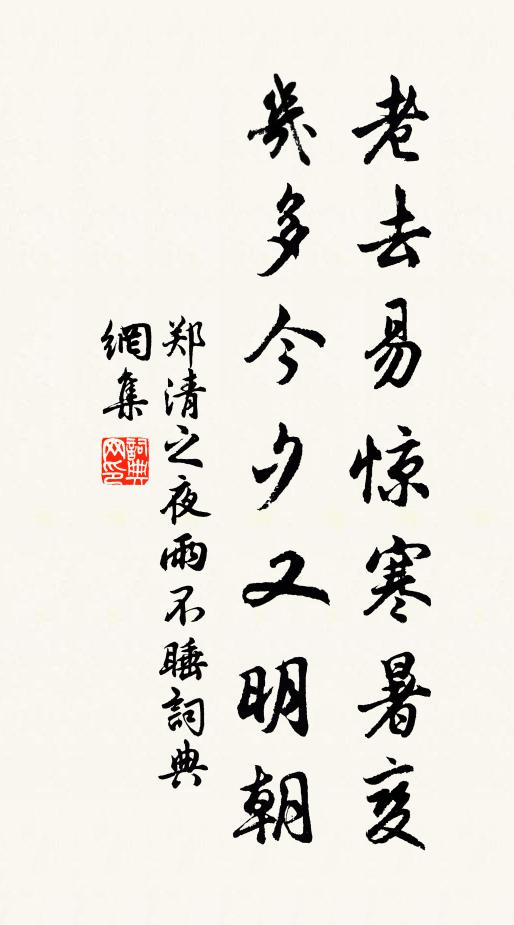 老去易惊寒暑变
幾多今夕又明朝
郑清之夜雨不睡詞典
網集
詞典
网印